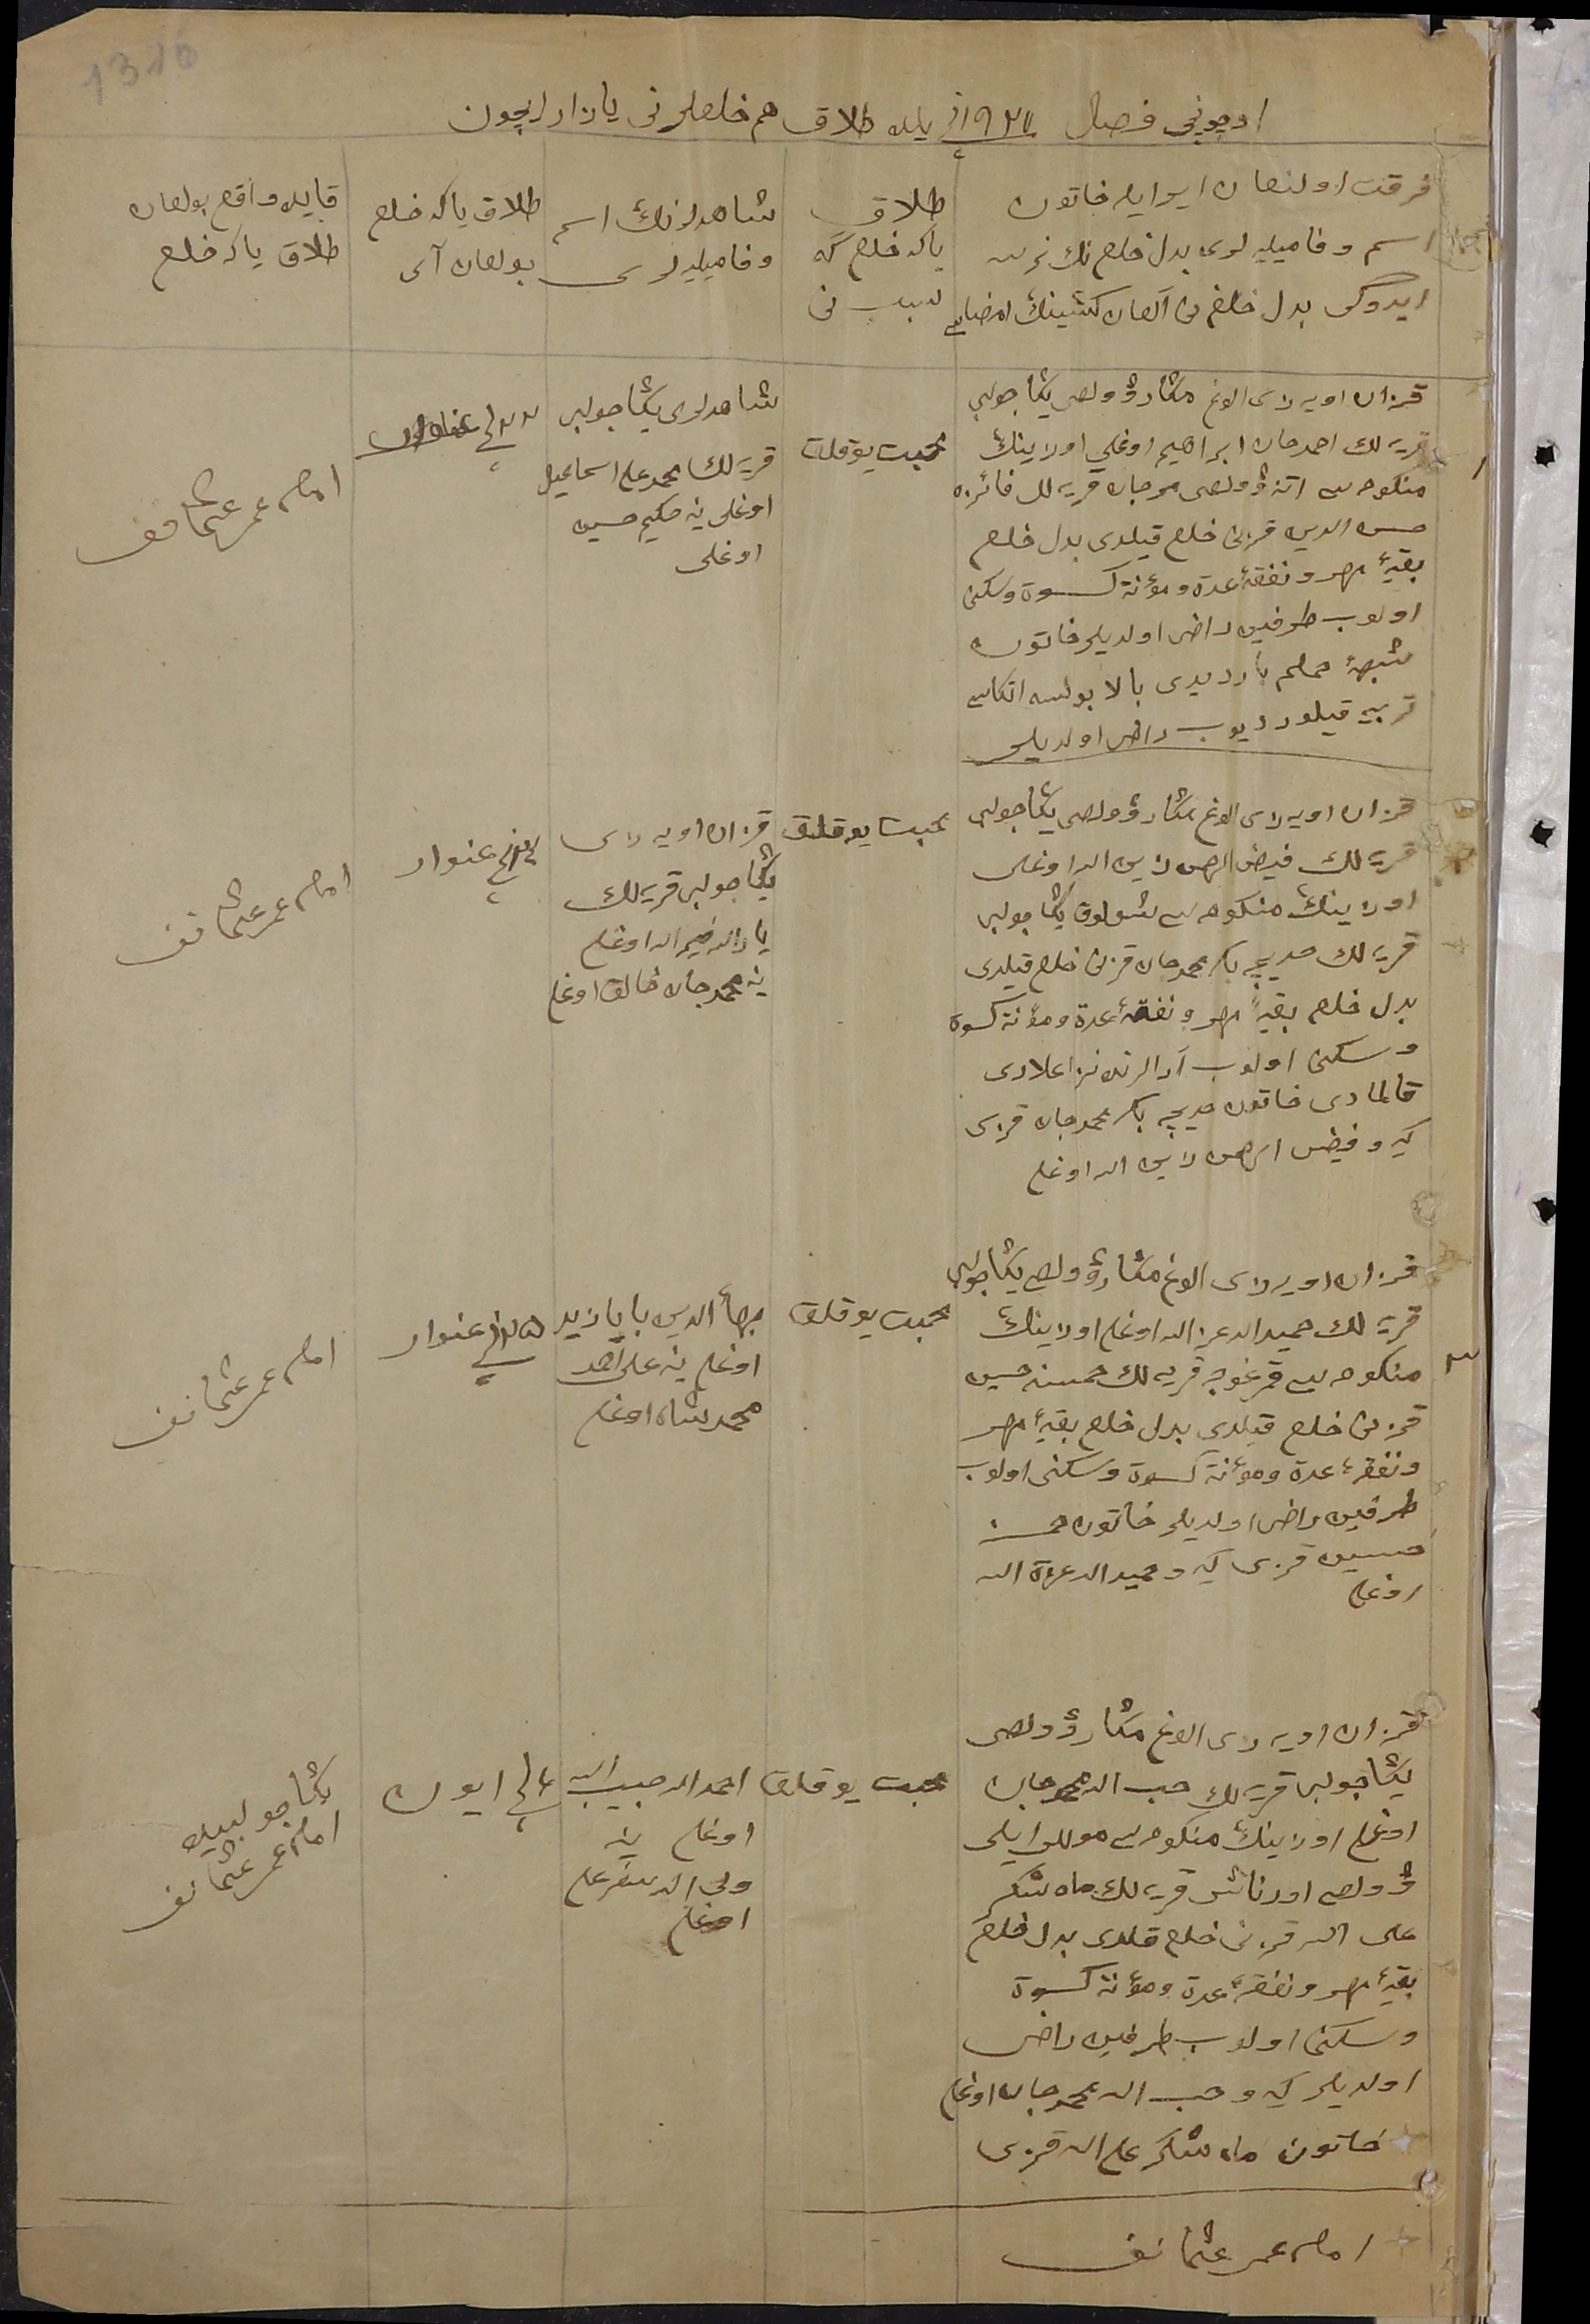 1316
اوچونچی فصل ١٩٢٧نچی یلده طلاق هم خلعلرنی یازار ایچون
فرقت اولنغان ایر ایله خاتون
اسم و فامیلیه لری بدل خلع نك نرسه
ایدوکی بدل خلع نی آلغان کشینك امضاسی
طلاق
یاکه خلع گه
سبب نی
شاهدلرنك اسم
و فامیلیه لری
طلاق یاکه خلع
بولغان آی
قایده واقع بولغان
طلاق یاکه خلع
١
قزان اویه زی الوغ مڭار ۋولصی یڭا جولبی
قریه لك احمدجان ابراهیم اوغلی اوزینك
منکوحه سی اتنه ۋولصی مرجان قریه لك فائزه
حسن الدین قزین خلع قیلدی بدل خلع
بقیۀ مهر و نفقۀ عدة و مؤنة کسوة و سکنی
اولوب طرفین راضی اولدیلر خاتون
شبهۀ حملم بار دیدی بالا بولسه اتکاسی
تربیه قیلور دیوب راضی اولدیلر
محبت یوقلق
شاهدلری یڭا جولبی
قریه لك محمدعلی اسماعیل
اوغلی ینه حکیم حسین
اوغلی
امام عمر عثمانف
قزان اویه زی الوغ مڭار ۋولصی یڭا جولبی
قریه لك فیض الرحمن زین الله اوغلی
اوزینك منکوحه سی شولوق یڭا جولبی
قریه لك خدیجه بکر محمدجان قزین خلع قیلدی
بدل خلع بقیۀ مهر و نفقۀ عدة و مؤنة کسوة
و سکنی اولوب آرالرنده نزاعلاری
قالمادی خاتون خدیجه بکر محمدجان قزی
کیه و فیض الرحمن زین الله اوغلی
محبت یوقلق
قزان اویه زی
یڭا جولبی قریه لك
یارالله خیرالله اوغلی
ینه محمدجان خالق اوغلی
غنوار
امام عمر عثمانف
٣
قزان اویه زی الوغ مڭار ۋولصی یڭا جولبی
قریه لك حمیدالله عزالله اوغلی اوزینك
منکوحه سی قمرغوجه قریه لك حسنه حسین
قزین خلع قیلدی بدل خلع بقیۀ مهر
و نفقۀ عدة و مؤنة کسوة و سکنی اولوب
طرفین راضی اولدیلر خاتون حسنه
حسین قزی کیه و حمیدالله عزة الله
اوغلی
محبت یوقلق
بهاءالدین بایازید
اوغلی ینه علی احمد
محمدشاه اوغلی
غنوار
امام عمر عثمانف
قزان اویه زی الوغ مڭار ۋولصی
یڭا جولبی قریه لك حب الله محمدجان
اوغلی اوزینك منکوحه سی موللی ایلی
ۋولصی اورناش قریه لك ماه شکر
علی الله قزنی خلع قلدی بدل خلع
بقیۀ مهر و نفقۀ عدة و مؤنة کسوة
و سکنی اولوب طرفین راضی
اولدیلر کیه و حب الله محمدجان اوغلی
خاتون ماه شکر علی الله قزی
محبت یوقلق
احمدالله حبیب الله
اوغلی ینه
ولی الله سفرعلی
اوغلی
ایون
یڭا جولبیده
امام عمر عثمانف
امام عمر عثمانف